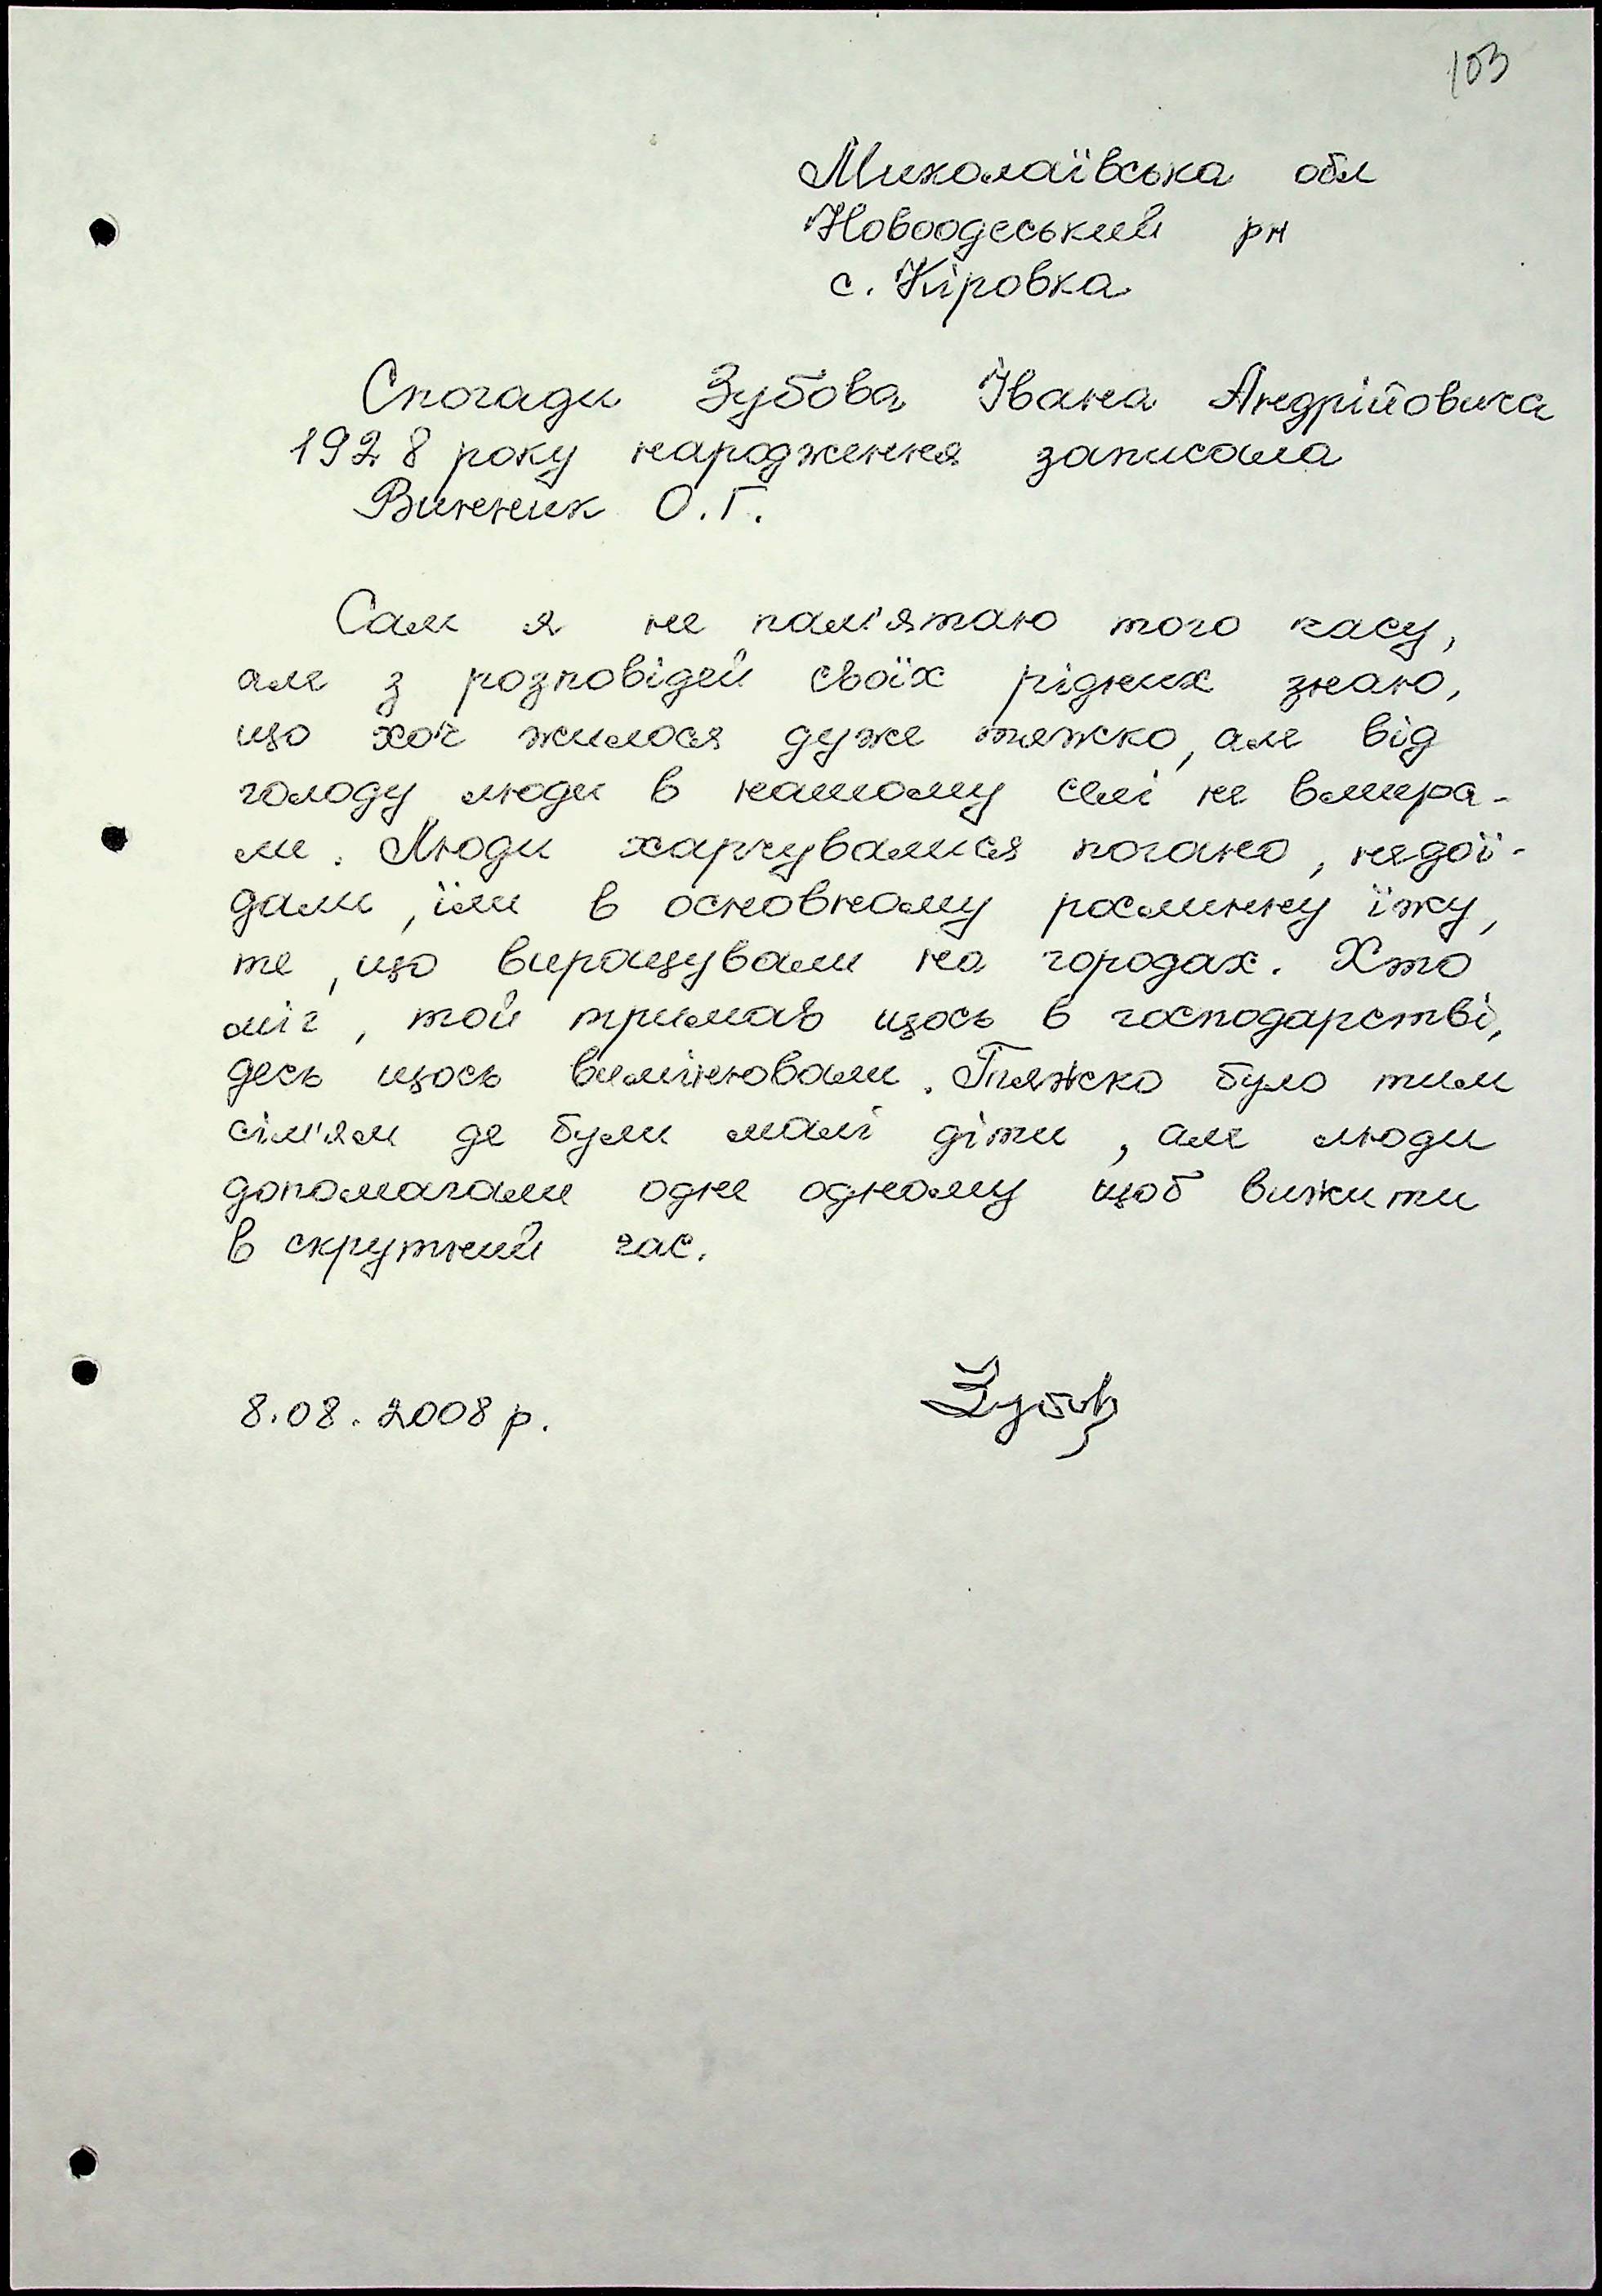 103
Миколаївська обл
Новоодеський рн
с. Кіровка
Спогади Зубова Івана Андрійовича
1928 року народження записала
Винник О.Г.
Сам я не пам'ятаю того часу,
але з розповідей своїх рідних знаю,
що хоч жилося дуже тяжко, але від
голоду люди в нашому селі не вмира-
ли. Люди харчувалися погано, недої-
дали, їли в основному рослинну їжу,
те, що вирощували на городах. Хто
міг, той тримав щось в господарстві,
десь щось вимінювали. Тяжско було тим
сім'ям де були малі діти, але люди
допомагали одне одному щоб вижити
в скрутний час.
8.08.2008 р.
Зубов